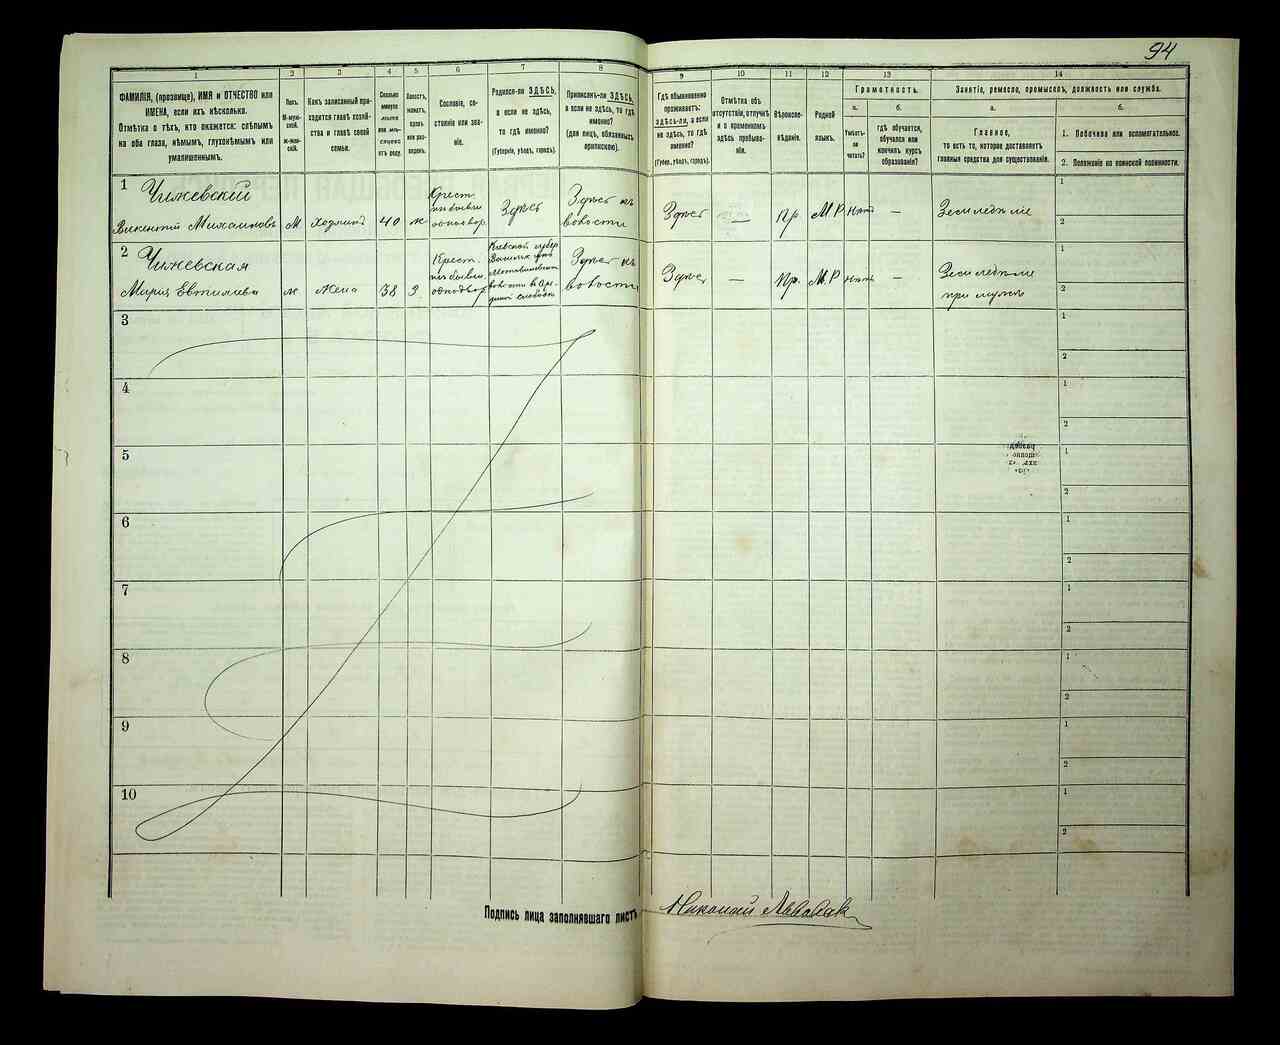 94
1 2 3 4 5 6 7 8 9 10 11 12 13 14
ФАМИЛІЯ, (прозвище), ИМЯ и ОТЧЕСТВО или
ИМЕНА, если ихъ нѣсколько.
Отмѣтка о тѣхъ, кто окажется: слѣпымъ
на оба глаза, нѣмымъ, глухонѣмымъ или
умалишеннымъ.
Полъ.
М-муж-
ской.
Ж-жен-
скій.
Какъ записанный при-
ходится главѣ хозяй-
ства и главѣ своей
семьи.
Сколько
минуло
лѣтъ
или мѣ-
сяцевъ
отъ роду.
Холостъ,
женатъ,
вдовъ
или раз-
веденъ.
Сословіе, со-
стояніе или зва-
ніе.
Родился-ли ЗДѢСЬ,
а если не здѣсь,
то гдѣ именно?
(Губернія, уѣздъ, городъ).
Приписанъ-ли ЗДѢСЬ,
а если не здѣсь, то гдѣ
именно?
(для лицъ, обязанныхъ
припискою).
Гдѣ обыкновенно
проживаетъ:
ЗДѢСЬ-ЛИ, а если
не здѣсь, то гдѣ
именно?
(Губер., уѣздъ, городъ).
Отмѣтка объ
отсутствіи, отлучкѣ
и о временномъ
здѣсь пребыва-
ніи.
Вѣроиспо-
вѣданіе.
Родной
языкъ.
Грамотность.
а.
Умѣетъ-
ли
читать?
б.
гдѣ обучается,
обучался или
кончилъ курсъ
образованія?
Занятіе, ремесло, промыселъ, должность или служба.
а.
Главное,
то есть то, которое доставляетъ
главныя средства для существованія.
б.
1. Побочное или вспомогательное.
2. Положеніе по воинской повинности.
1
Чижевскій
Викентій Михаиловъ
М
хозяинъ
40
ж
Крест.
изъ бывш.
однодвор.
Здѣсь
Здѣсь къ
волости
Здѣсь
—
Пр
М Р
нѣтъ
—
Земледѣліе
1
2
2
Чижевская
Марія
ж
жена
38
З
Крест.
изъ бывш.
однодвор.
Кіевской губер
Здѣсь къ
волости
Здѣсь
—
Пр.
М Р
нѣтъ
—
Земледѣліе
при мужѣ
1
2
3
1
2
4
1
2
5
1
2
6
1
2
7
1
2
8
1
2
9
1
2
10
1
2
Подпись лица заполнявшаго листъ
Николай